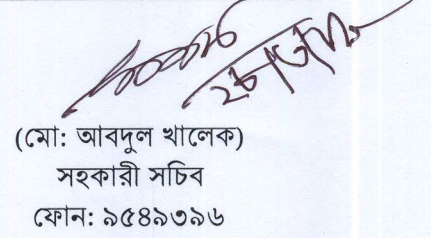 (মো: আবদুল খালেক)
সহকারী সচিব
ফোন: ৯৫৪৯৩৯৬